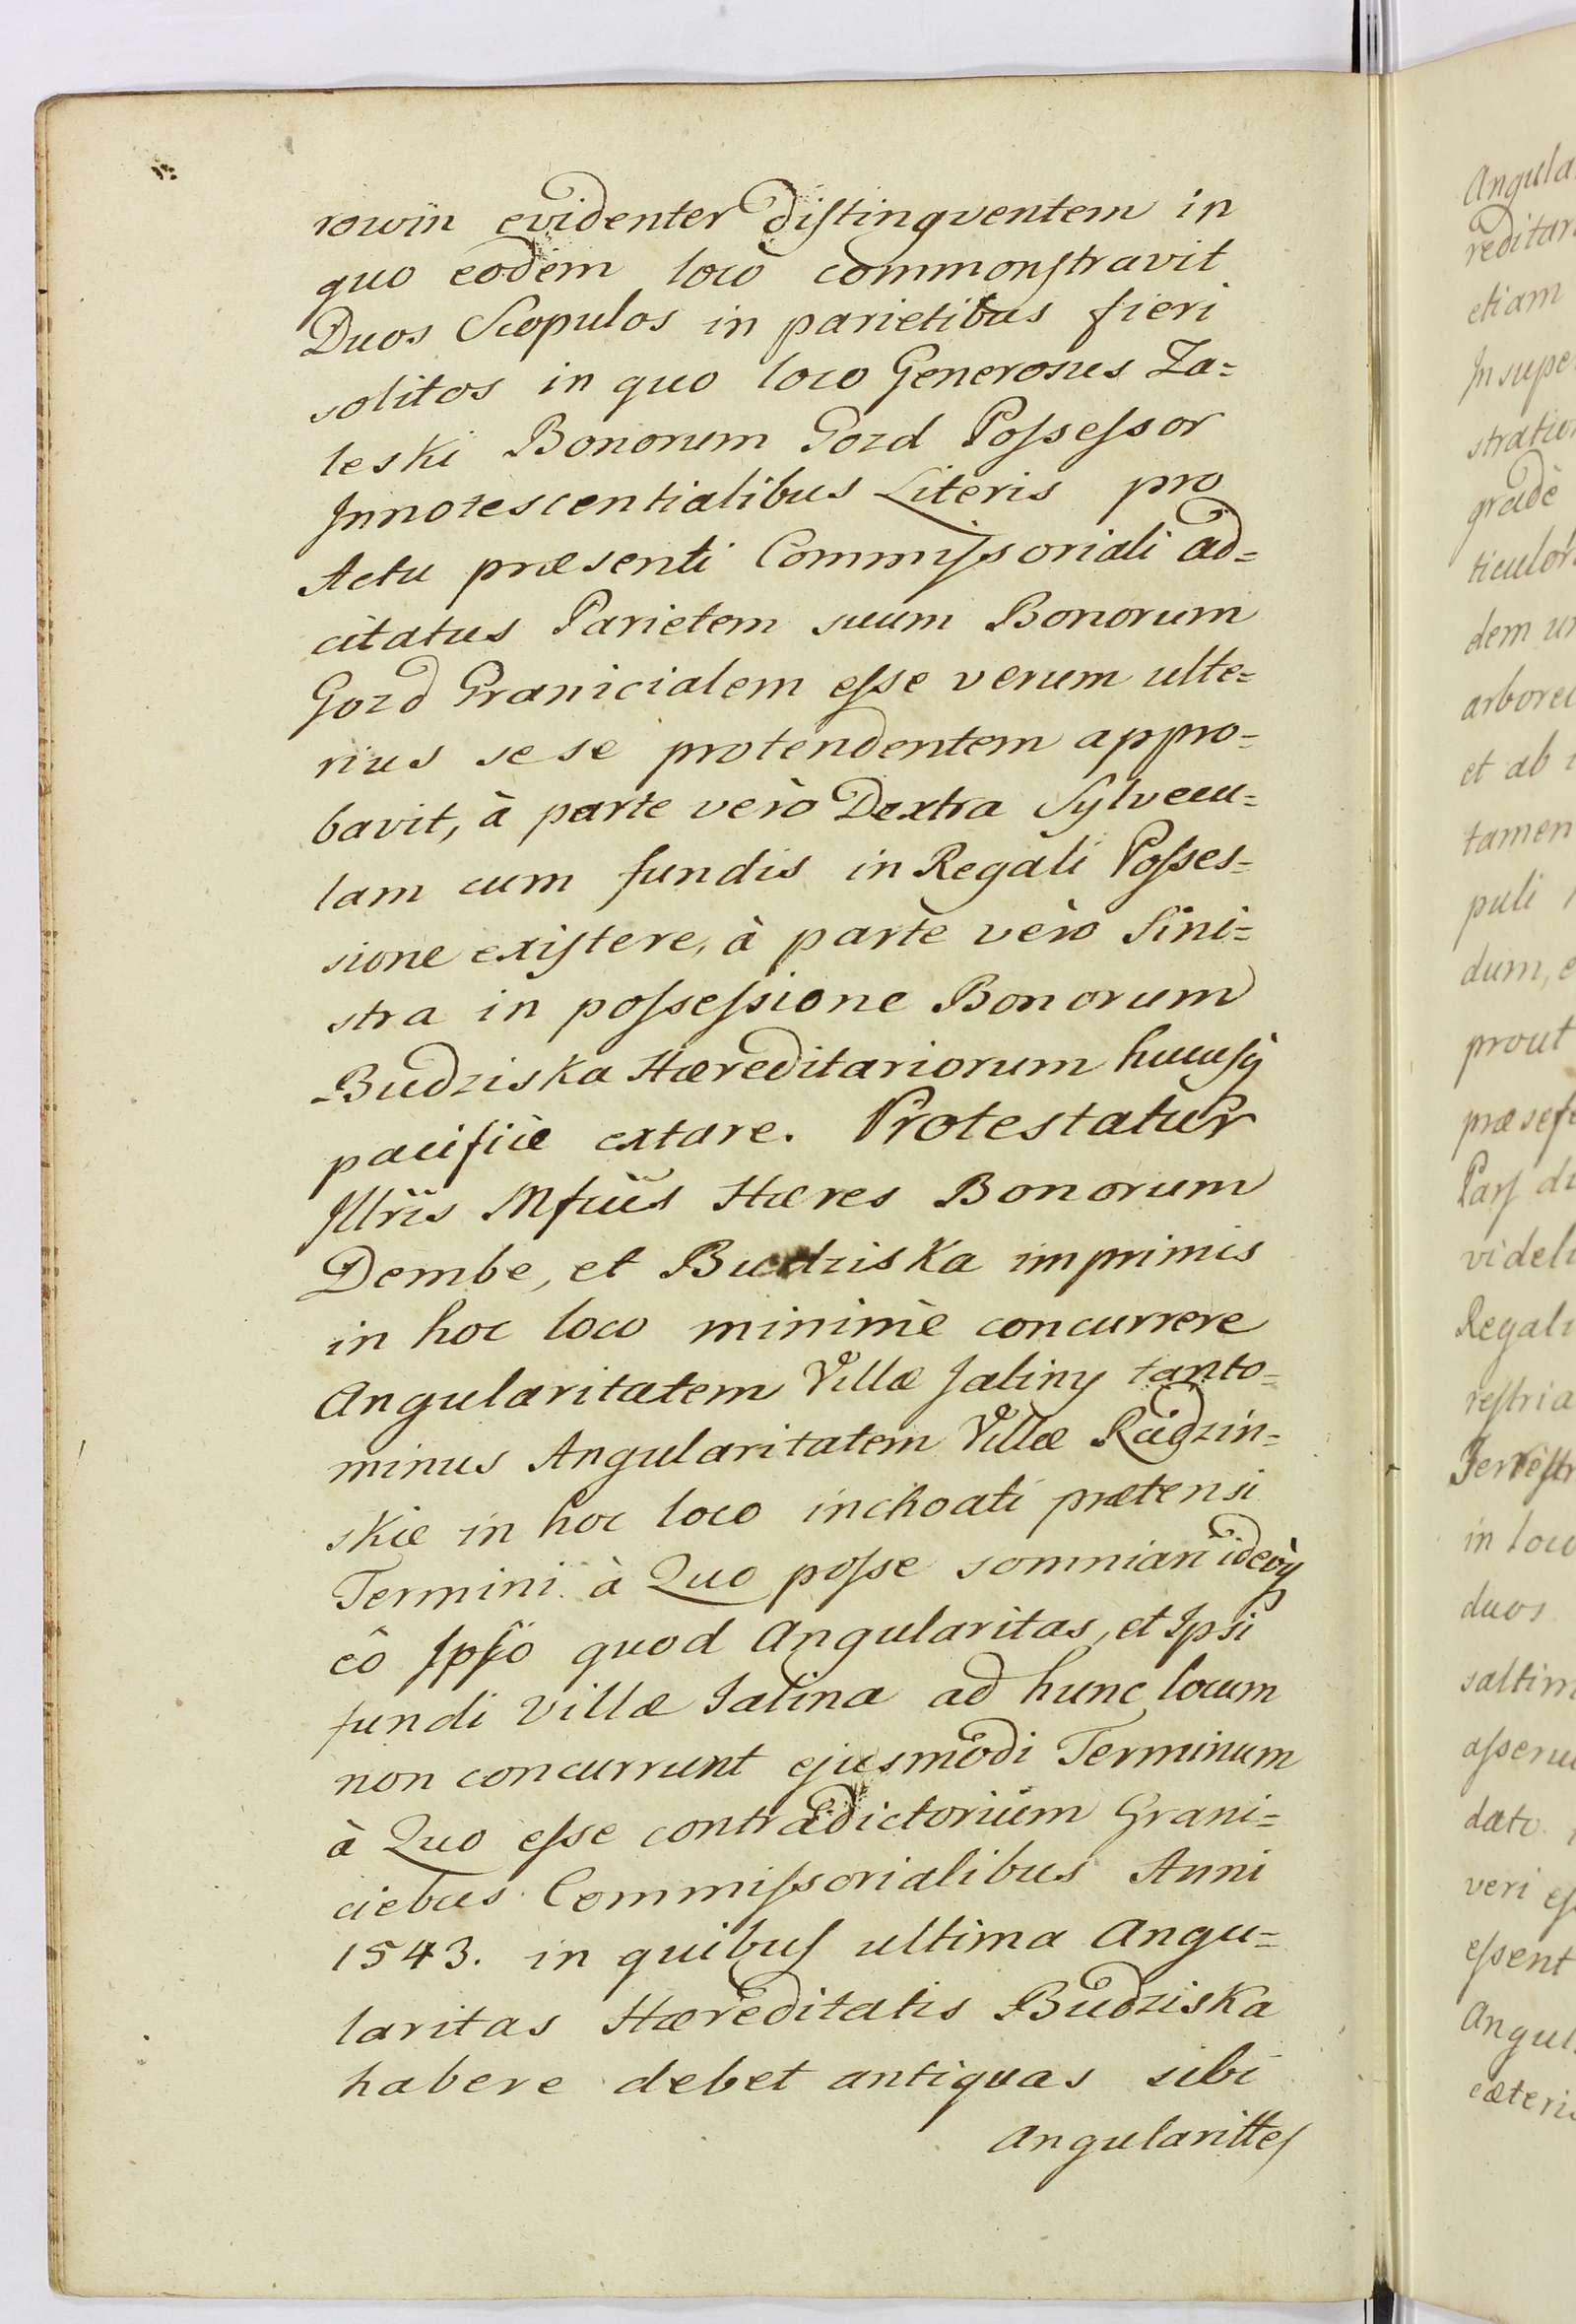 rowin evidenter distinqventem in
quo eodem locô commonstravit
Duos Scopulos in parietibus fieri
solitos in quo loco Generosus Za=
leski Bonorum Gozd Possessor
Innotescentialibus Literis pro
Actu præsenti Commissoriali ad=
citatus Parietem suum Bonorum
Gozd Granicialem esse verum ulte=
rius se se protendentem appro=
bavit, à parte verò Dextra Sylvecu=
lam cum fundis in Regali Posses=
sione existere, à parte verò Sini=
stra in possessione Bonorum
Budziska Hæreditariorum hucusq
pacificè extare. Protestatur
Illris Mfcus Hæres Bonorum
Dembe, et Budziska imprimis
in hoc loco minimè concurrere
Angularitatem Villæ Jaliny tanto=
minus Angularitatem Villæ Rudzin=
skie in hoc loco inchoati prætensi
Termini à Quo posse somniari ideòq
eô Ipsô quod Angularitas, et Ipsi
fundi Villæ Jalina ad hunc locum
non concurrunt ejusmodi Terminum
à Quo esse contradictorium Grani=
ciebus Commissorialibus Anni
1543. in quibus ultima Angu=
laritas Hæreditatis Budziska
habere debet antiquas sibi
Angularittes
Angula
reditar
etiam
Insupe
stration
gradè
ticulor
dem un
arbore
et ab
tamen
puli
dum, e
prout
præsef
Pars di
videli
Regali
restria
Terrestr
in loco
duos
saltim
asseru
dato
veri es
essent
Angul
cæteris